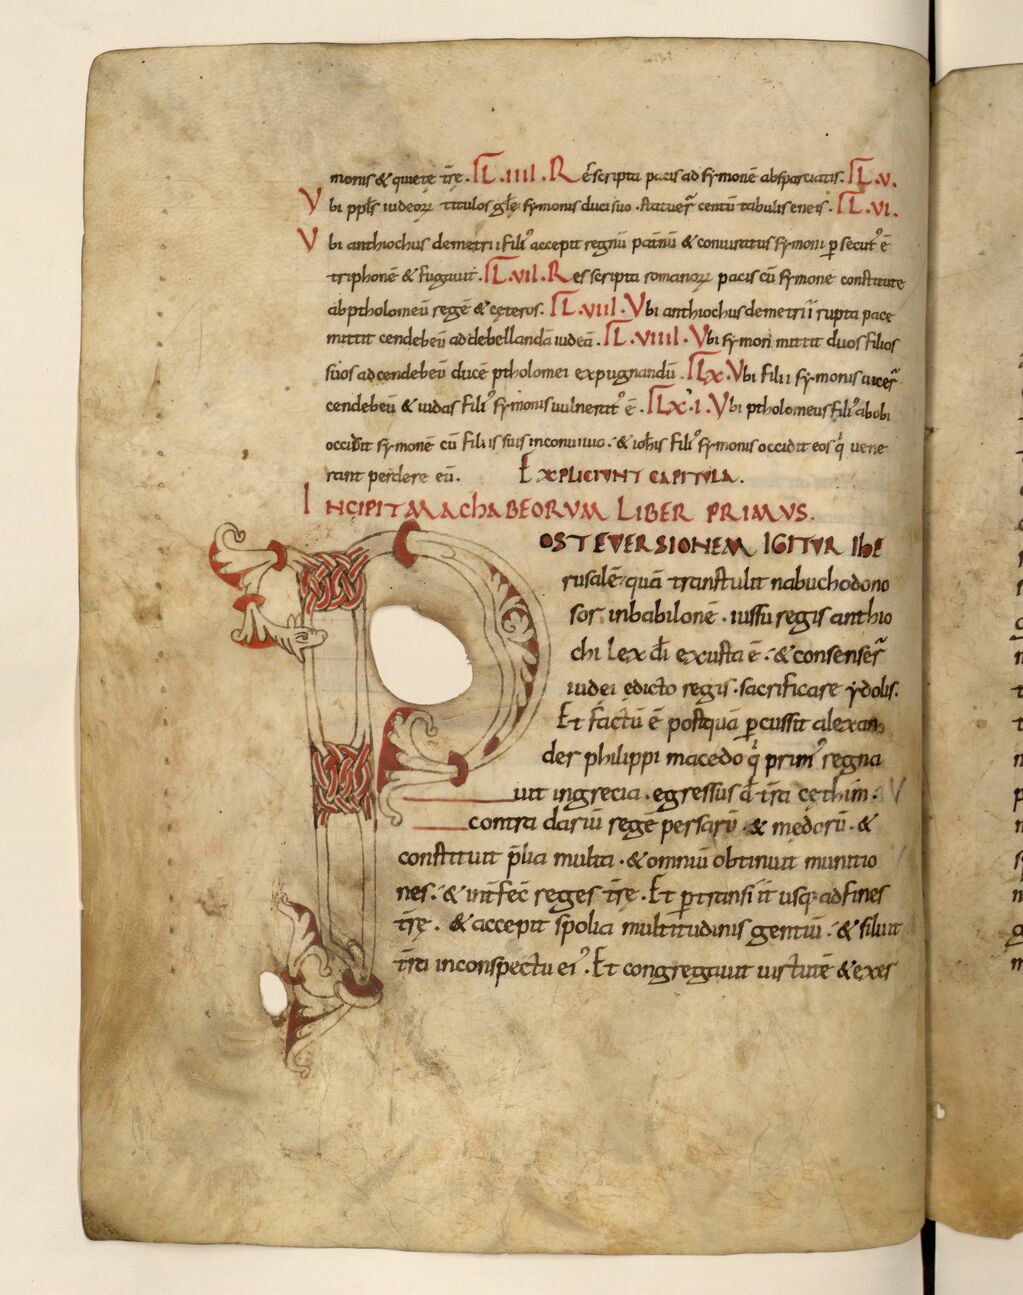 monis & quiete tr̄e. L.IIII. R ēscripta pacis ad symonē ab sparciatis. L.V.
V bi ppl's iudeoꝝ titulos gl'ę symonis duci suo. statuer̄ centū tabulis eneis. L.VI.
V bi anthiochus demetrii fili' accepit regnū patrū & coniuratus symoni ꝑsecut' ē
triphonē & fugauit. L.VII. Res scripta romanoꝝ pacis cū symone constitute
ab ptholomeū regē & ceteros. L.VIII. Vbi anthiochus demetrii rupta pace
mittit cendebeū ad debellandā iudeā. L.VIIII. Vbi symon mittit duos filios
suos ad cendebeū ducē ptholomei expugnandū. LX. Vbi filii symonis uicer̄
cendebeū & iudas fili' symonis uulnerat' ē. LX.I. Vbi ptholomeus fili' abobi
occidit symonē cū filiis suis in conuiuio. & ioh̄s fili' symonis occidit eos q' uene
rant perdere eū. EXPLICIUNT CAPITULA.
INCIPIT MAChABEORVM LIBER PRIMVS.
POST EVERSIONEM IGITVR IhE
rusalē quā transtulit nabuchodono
sor in babilonē. iussu regis anthio
chi lex dī exusta ē. & consenser̄
iudei ędicto regis. sacrificare ydolis.
Et factū ē postquā ꝑcussit alexan
der philippi macedo q' prim' regna
uit in grecia. egressus d̄ tr̄a cethim.
contra dariū regē persarū. & medorū. &
constituit p̄lia multa. & omniū obtinuit munitio
nes. & int̄fec̄ reges tr̄ę. Et ꝑtransiit usq; ad fines
tr̄ę. & accepit spolia multitudinis gentiū. & siluit
tr̄a in conspectu ei'. Et congregauit uirtutē & exer